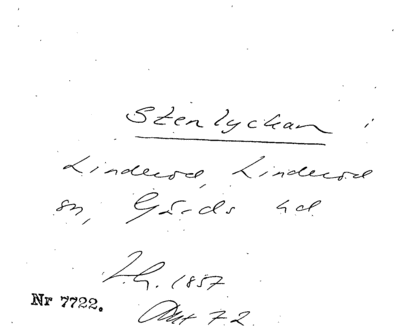 Stenlyckan i
Linderöd, Linderöd
sn, Gärds hd
1857
Nr 7722.
72